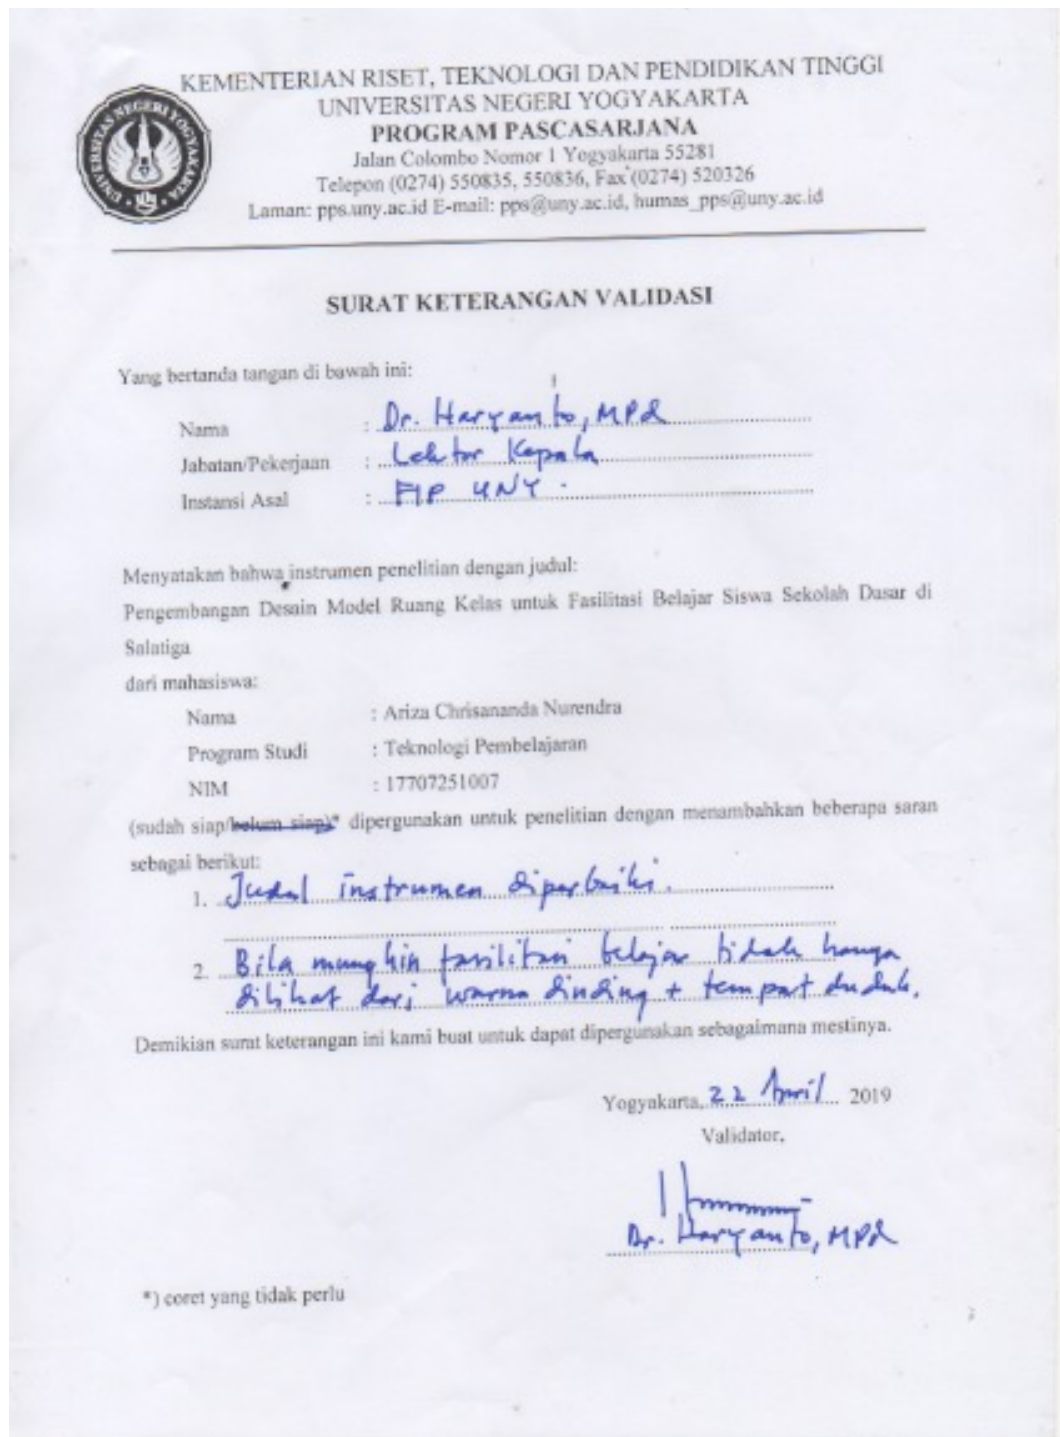 KEMENTERIAN RISET, TEKNOLOGI DAN PENDIDIKAN TINGGI
UNIVERSITAS NEGERI YOGYAKARTA
PROGRAM PASCASARJANA
Jalan Colombo Nomor 1 Yogyakarta 55281
Telepon (0274) 550835, 550836, Fax (0274) 520326
Laman: pps.uny.ac.id E-mail: pps@uny.ac.id, humas_pps@uny.ac.id
UNIVERSITAS NEGERI YOGYAKARTA
SURAT KETERANGAN VALIDASI
Yang bertanda tangan di bawah ini:
Nama : Dr. Haryanto, MPd
Jabatan/Pekerjaan : Lektor Kepala
Instansi Asal : FIP UNY.
Menyatakan bahwa instrumen penelitian dengan judul:
Pengembangan Desain Model Ruang Kelas untuk Fasilitasi Belajar Siswa Sekolah Dasar di
Salatiga
dari mahasiswa:
Nama : Ariza Chrisananda Nurendra
Program Studi : Teknologi Pembelajaran
NIM : 17707251007
(sudah siap/belum siap)* dipergunakan untuk penelitian dengan menambahkan beberapa saran
sebagai berikut:
1. Judul instrumen diperbaiki.
2. Bila mungkin fasilitasi belajar tidak hanya
dilihat dari warna dinding + tempat duduk.
Demikian surat keterangan ini kami buat untuk dapat dipergunakan sebagaimana mestinya.
Yogyakarta, 22 April 2019
Validator,
Dr. Haryanto, MPd
*) coret yang tidak perlu